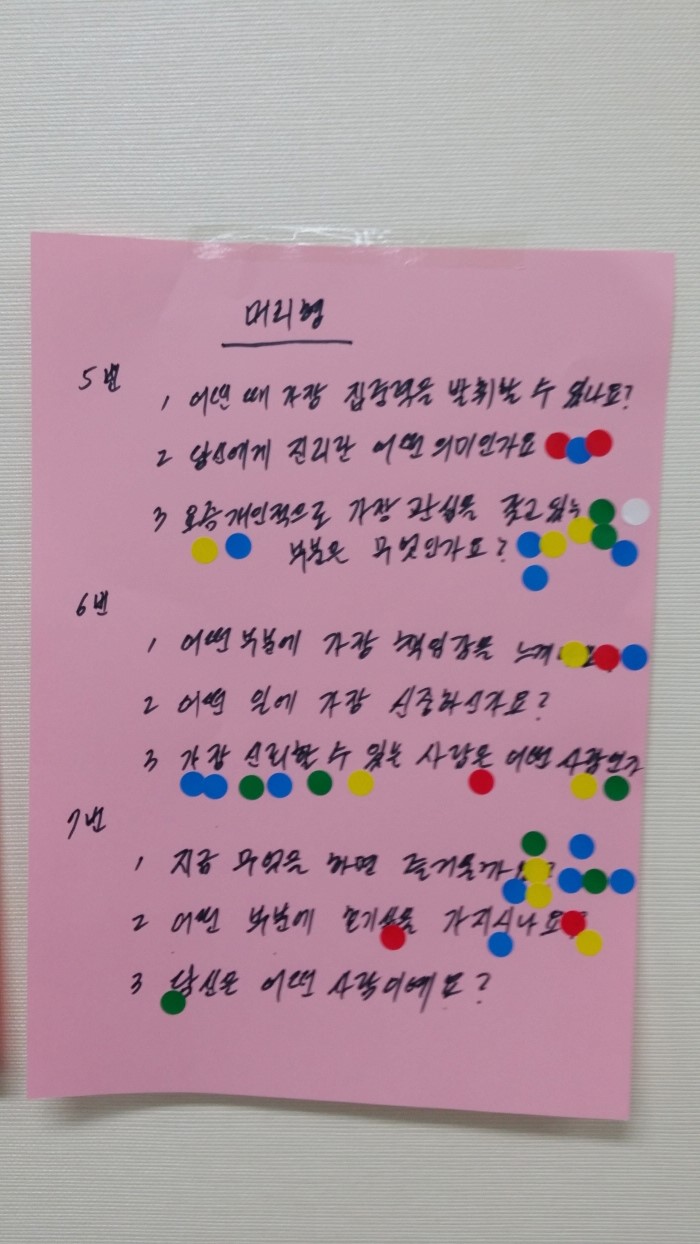 머리형
5번
1 어떤 때 가장 집중력을 발휘할 수 있나요?
2 당신에게 진리란 어떤 의미인가요
3 요즘 개인적으로 가장 관심을 갖고 있는
부분은 무엇인가요?
6번
1 어떤 부분에 가장 책임감을
2 어떤 일에 가장 신중하신가요?
3 가장 신뢰할 수 있는 사람은 어떤 사람인가
7번
1 지금 무엇을 하면 즐거울까
2 어떤 부분에 호기심을 가지시나요?
3 당신은 어떤 사람이예요?